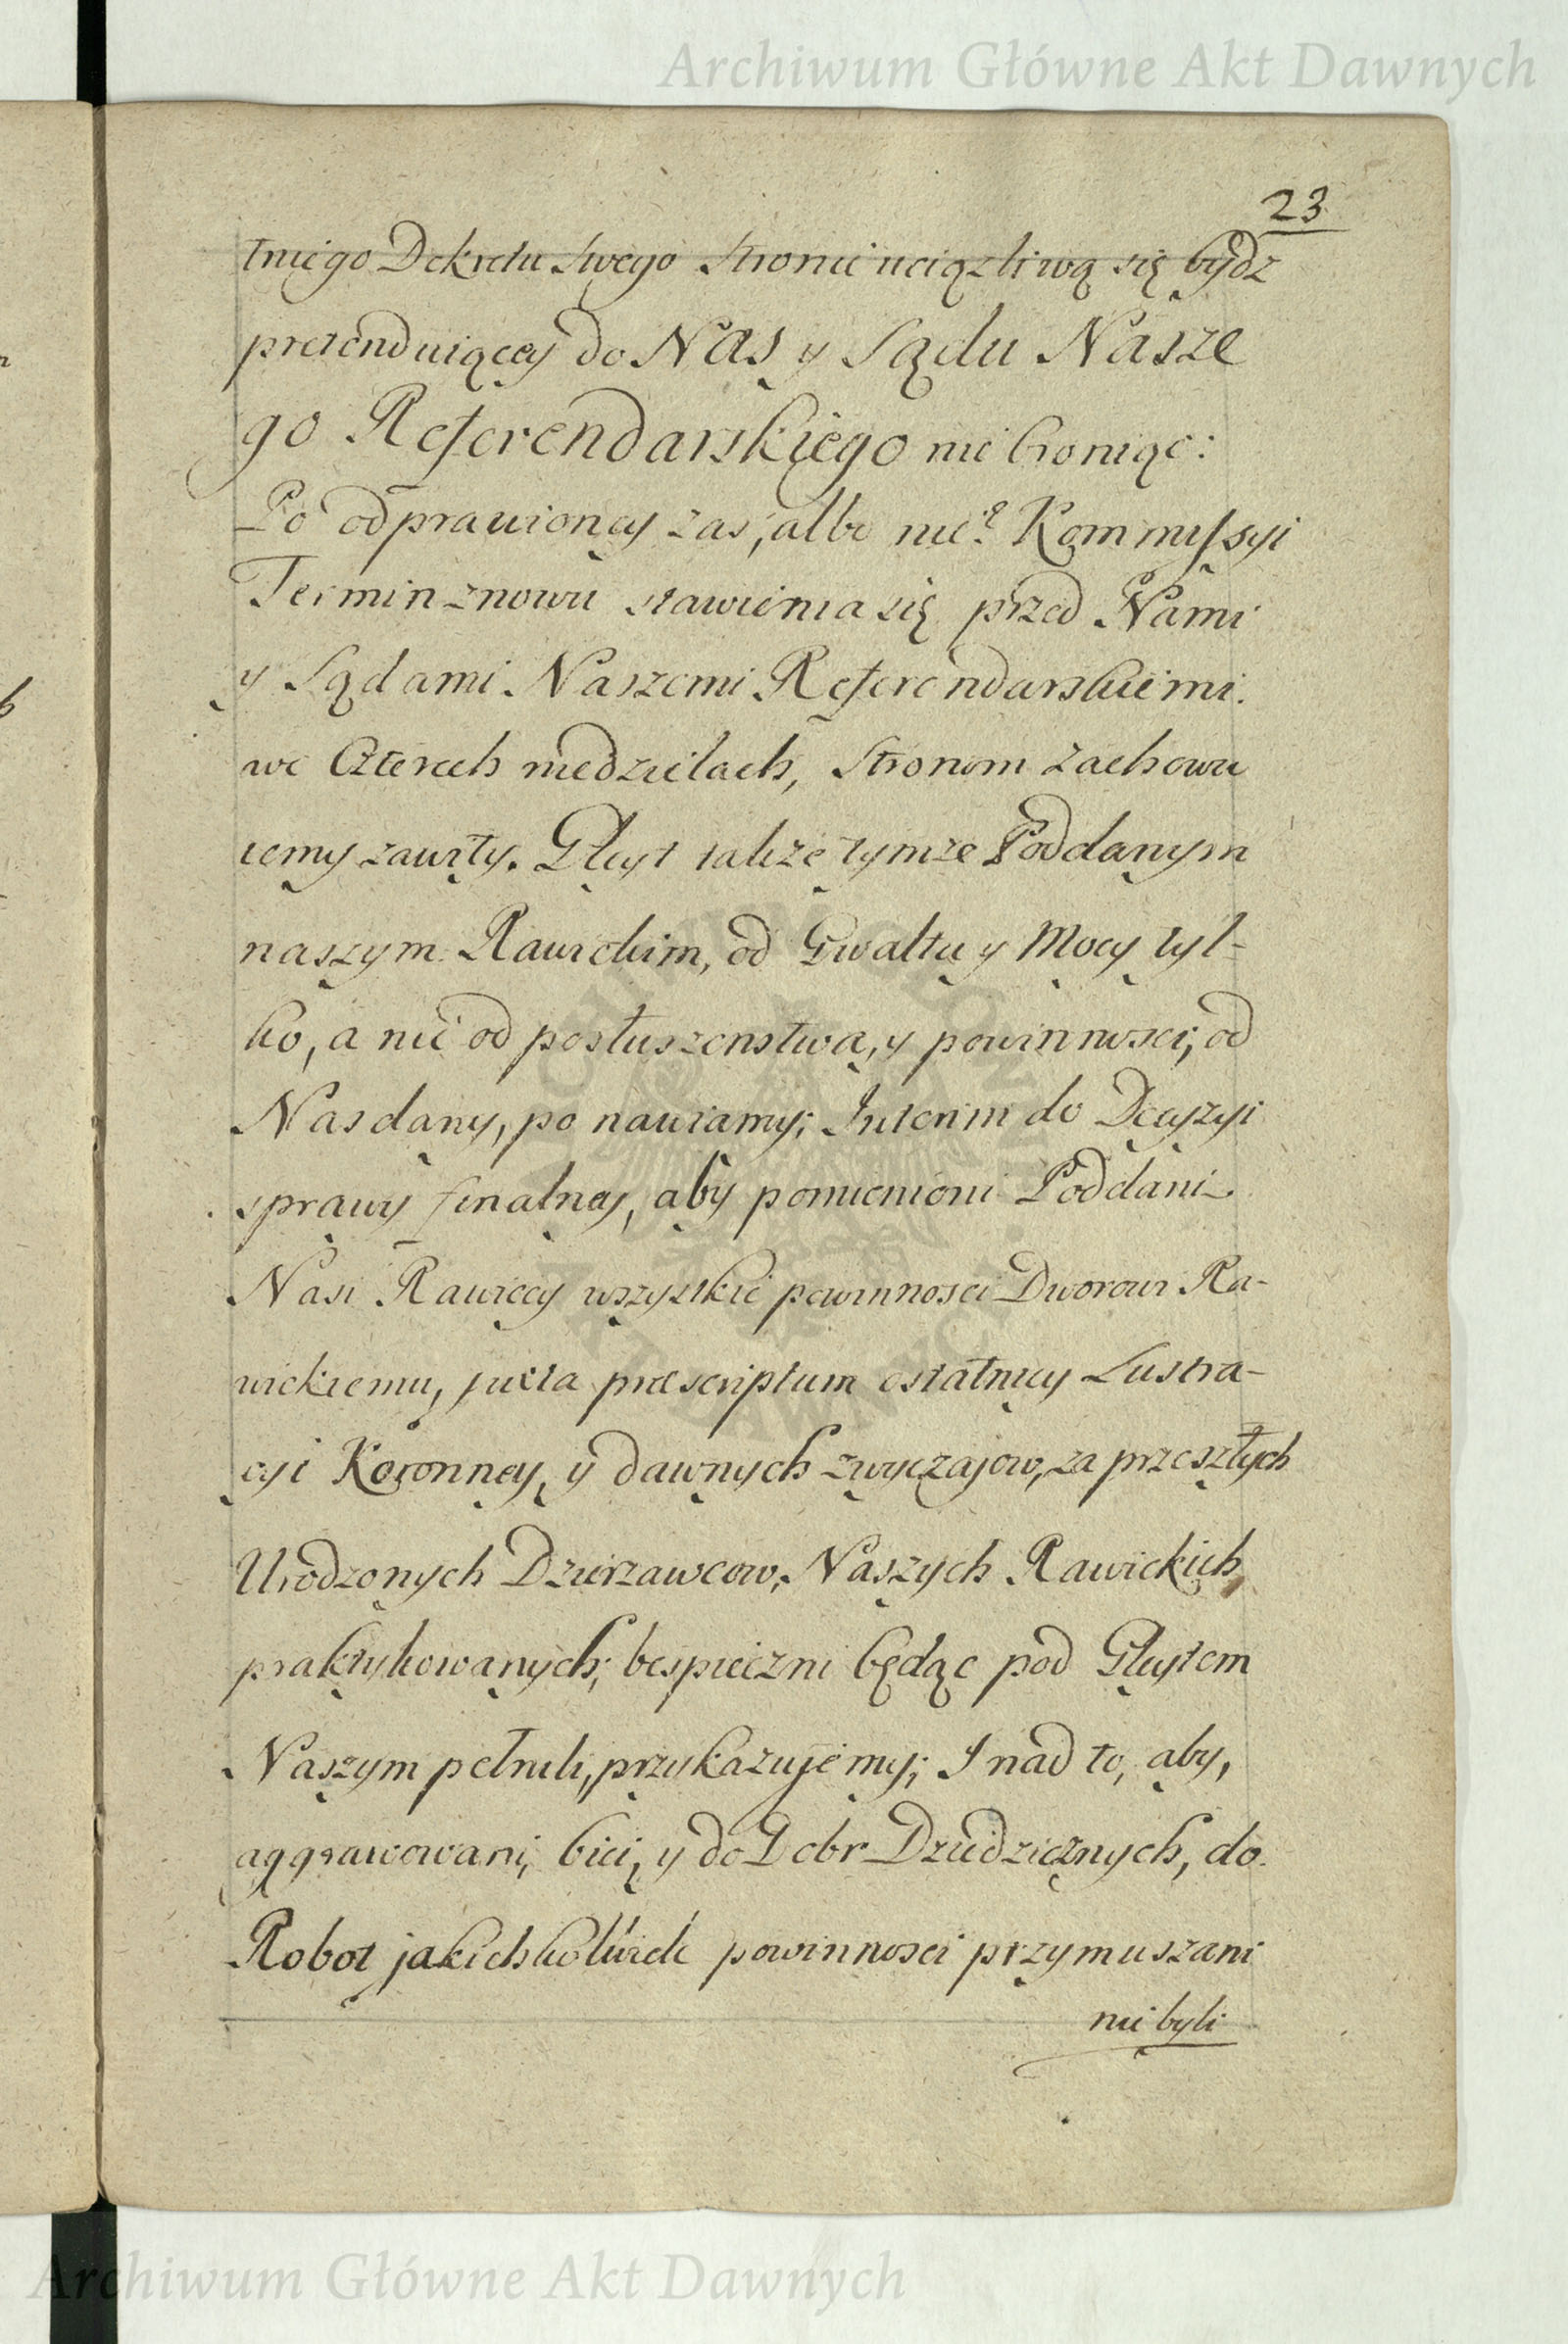 Archiwum Główne Akt Dawnych
23
tniego Dekretu Swego Stronie uciązliwą się bydz
pretenduiącey do NAS y Sądu Nasze
go Referendarskiego nie broniąc:
Po odprawioney zas, albo nie? Kommissyi
Termin znowu stawienia się przed Nami
y Sądami Naszemi Referendarskiemi.
we Czterech niedzielach, Stronom zachowu
iemy zawity. Gleyt także tymże Poddanym
naszym Rawickim, od Gwałtu y Mocy tyl-
ko, a nie od posłuszenstwa, y powinnosci, od
Nas dany, ponawiamy; Interim do Decyzyi
sprawy finalney, aby pomienioni Poddani
Nasi Rawiccy wszystkie powinnosci Dworowi Ra-
wickiemu, juxta præscriptum ostatniey Lustra-
cyi Koronney, y dawnych zwyczajow, za przeszłych
Urodzonych Dzierzawcow, Naszych Rawickich
praktykowanych; bespieczni będąc pod Gleytem
Naszym pełnili, przykazujemy; I nad to, aby,
aggrawowani, bici, y do Dobr Dziedzicznych, do
Robot jakichkolwiek powinnosci przymuszani
nie byli
Archiwum Główne Akt Dawnych